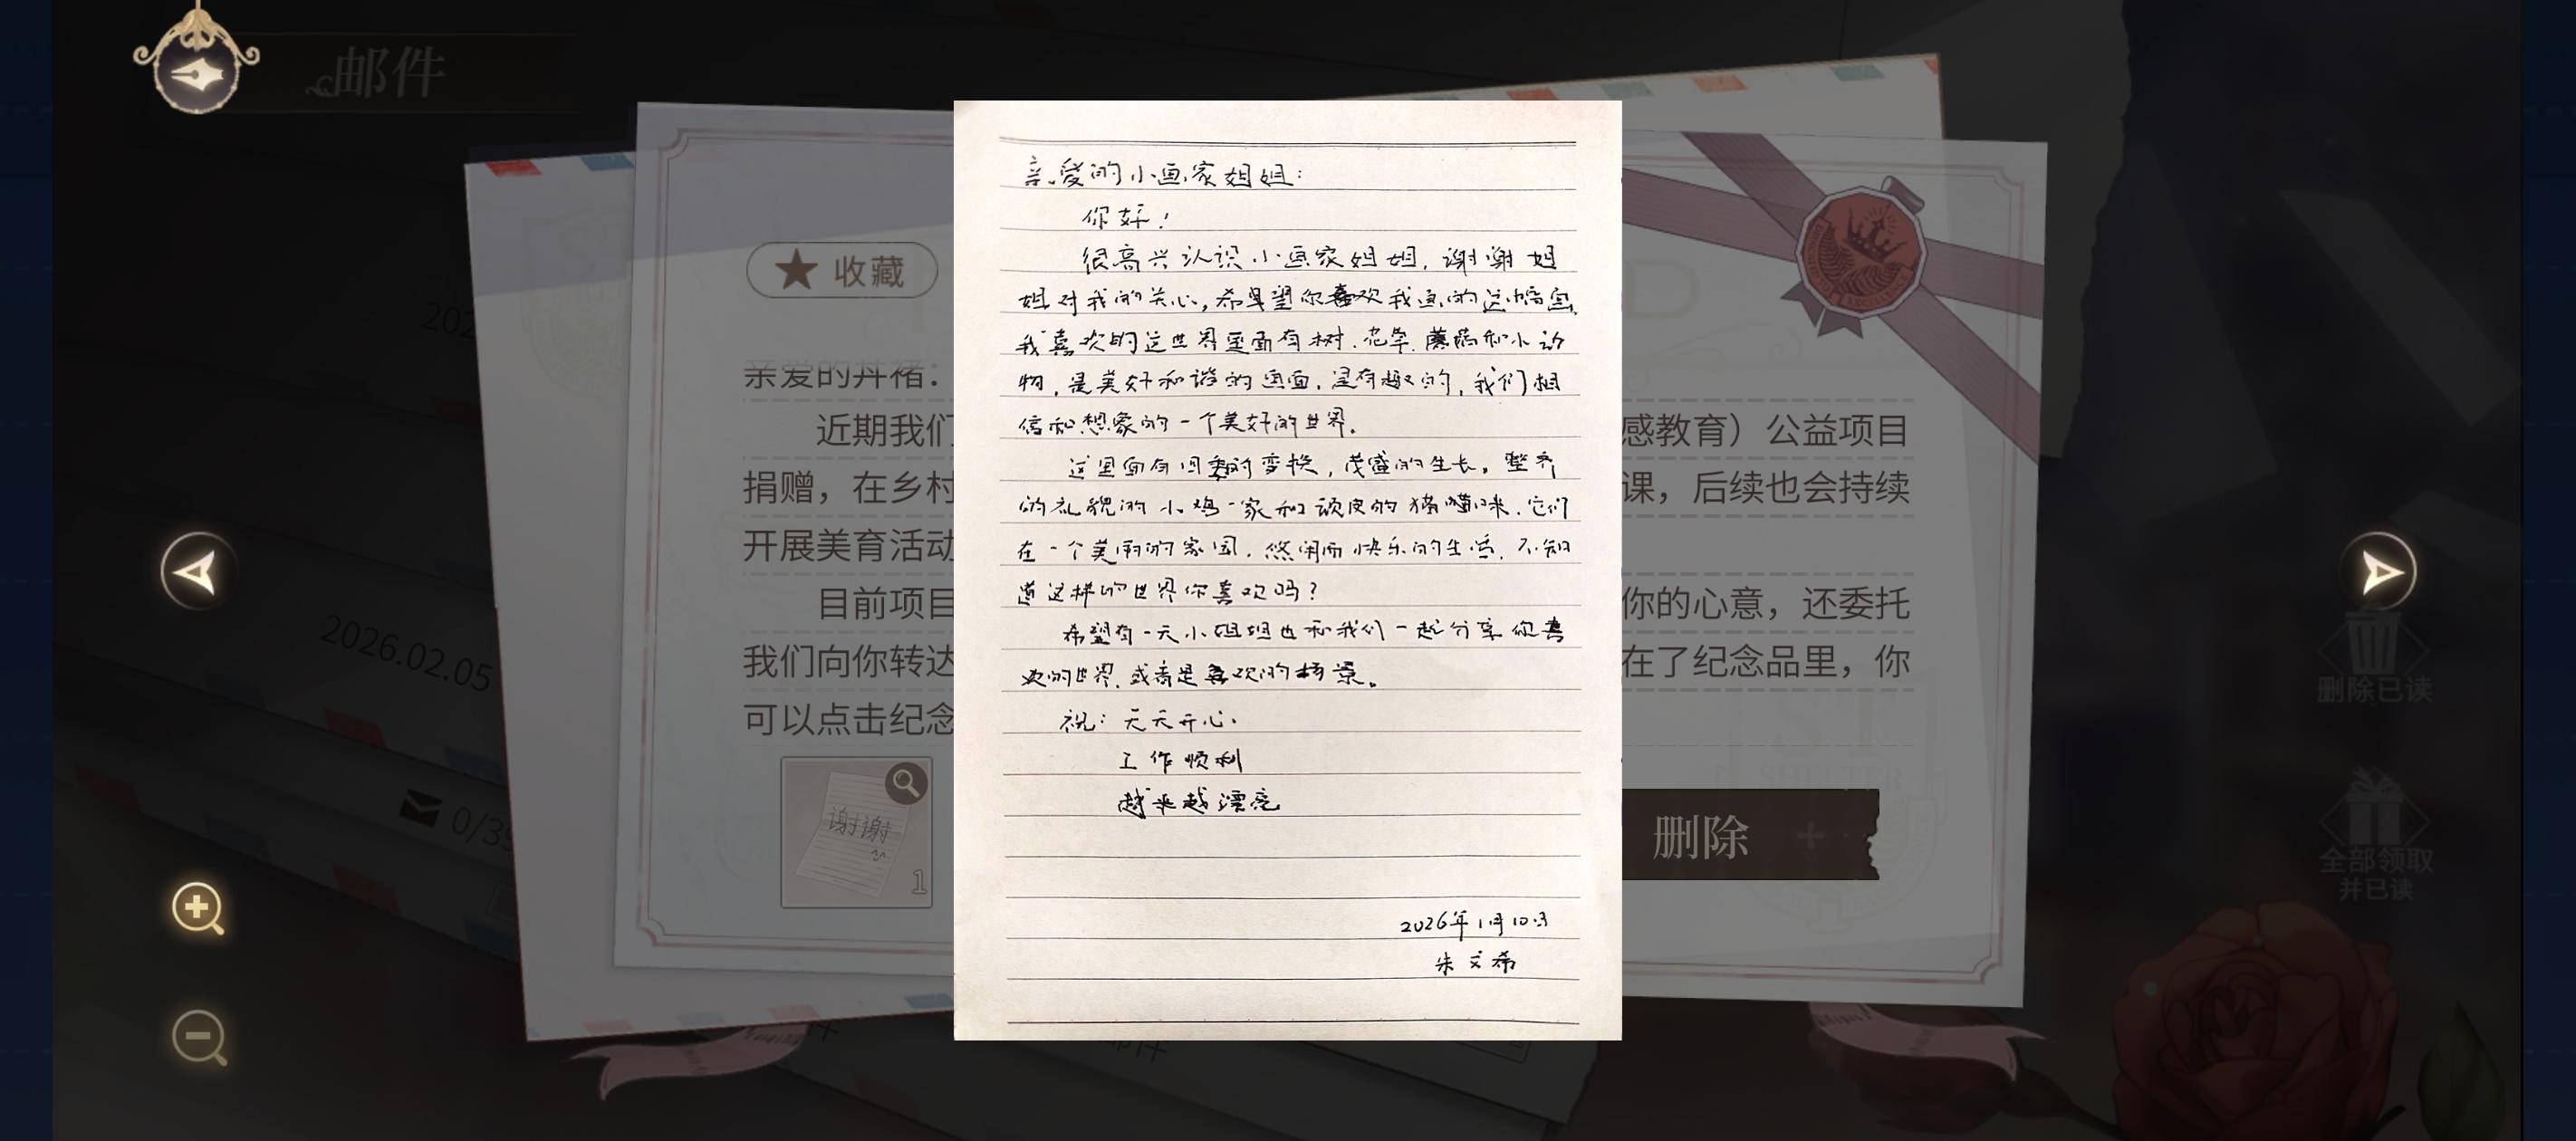 邮件
收藏
亲爱的
近期我们
感教育）公益项目
捐赠，在乡村
课，后续也会持续
开展美育活动
目前项目
你的心意，还委托
我们向你转达
在了纪念品里，你
可以点击纪念
谢谢
1
2026.02.05
0/3
删除
删除已读
全部领取
并已读
亲爱的小画家姐姐：
你好！
很高兴认识小画家姐姐，谢谢姐
姐对我的关心，希望你喜欢我画的这幅画，
我喜欢的这世界里面有树、花草、蘑菇和小动
物，是美好和谐的画面，是有趣的，我们相
信和想象的一个美好的世界。
这里面有四季的变换，茂盛的生长。整齐
的礼貌的小鸡一家和顽皮的猫咪，它们
在一个美丽的家园，悠闲而快乐的生活，不知
道这样的世界你喜欢吗？
希望有一天小姐姐也和我们一起分享你喜
欢的世界，或者是喜欢的场景。
祝：天天开心。
工作顺利
越来越漂亮
2026年1月10日
朱文希